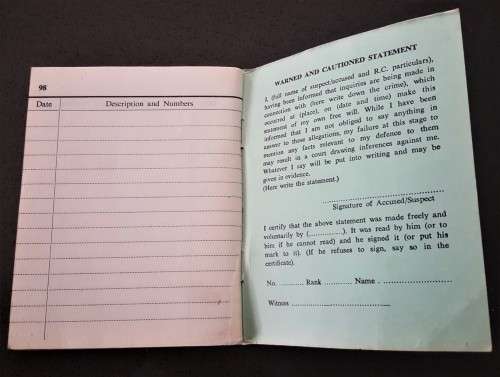 98
Date Description and Numbers
WARNED AND CAUTIONED STATEMENT
I, (full name of suspect/accused and R.C. particulars),
having been informed that inquiries are being made in
connection with (here write down the crime), which
occurred at (place), on (date and time) make this
statement of my own free will. While I have been
informed that I am not obliged to say anything in
answer to these allegations, my failure at this stage to
mention any facts relevant to my defence to them
may result in a court drawing inferences against me.
Whatever I say will be put into writing and may be
given in evidence.
(Here write the statement.)
Signature of Accused/Suspect
I certify that the above statement was made freely and
voluntarily by (..............). It was read by him (or to
him if he cannot read) and he signed it (or put his
mark to it). (If he refuses to sign, say so in the
certificate).
No. .......... Rank ............ Name . ........................
Witness ...................................